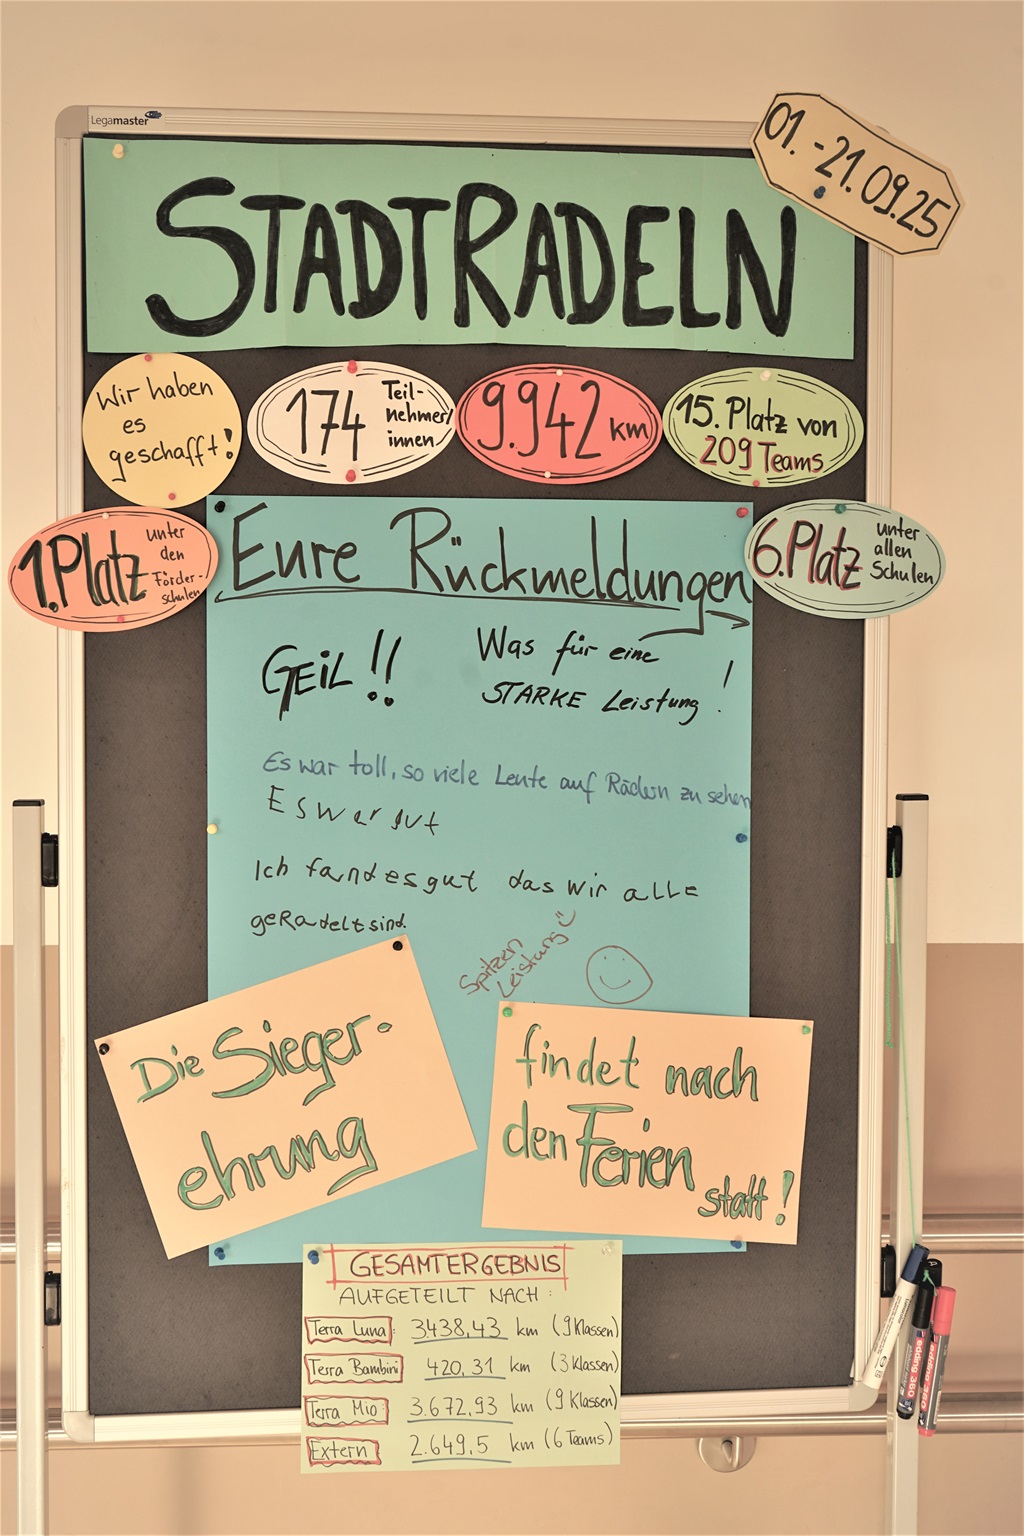 Legamaster
01. - 21.09.25
STADTRADELN
Wir haben
es
geschafft!
174
Teil-
nehmer/
innen
9.942 km
15. Platz von
209 Teams
1. Platz
unter
den
Förder-
schulen
6. Platz
unter
allen
Schulen
Eure Rückmeldungen
GEIL!!
Was für eine
STARKE Leistung!
Es war toll, so viele Leute auf Rädern zu sehen
Es war gut
Ich fand es gut das wir alle
geRadelt sind.
Spitzen
Leistung
Die Sieger-
ehrung
findet nach
den Ferien
statt!
GESAMTERGEBNIS
AUFGETEILT NACH:
Terra Luna: 3438,43 km (9 Klassen)
Terra Bambini 420,31 km (3 Klassen)
Terra Mio 3.672,93 km (9 Klassen)
Extern 2.649,5 km (6 Teams)
edding 360
edding 360